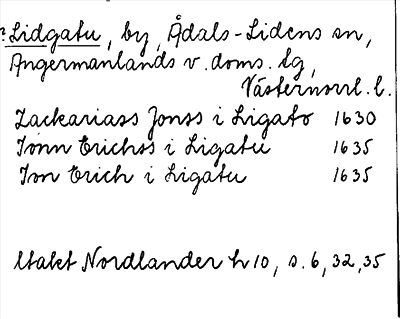 ? Lidgatu, by, Ådals-Lidens sn,
Ångermanlands v. doms. tg,
Västernorrl. l.
Zackariass Jonss i Ligato 1630
Jonn Erichss i Ligatu 1635
Jon Erich i Ligatu 1635
Utakt Nordlander h 10, s. 6, 32, 35